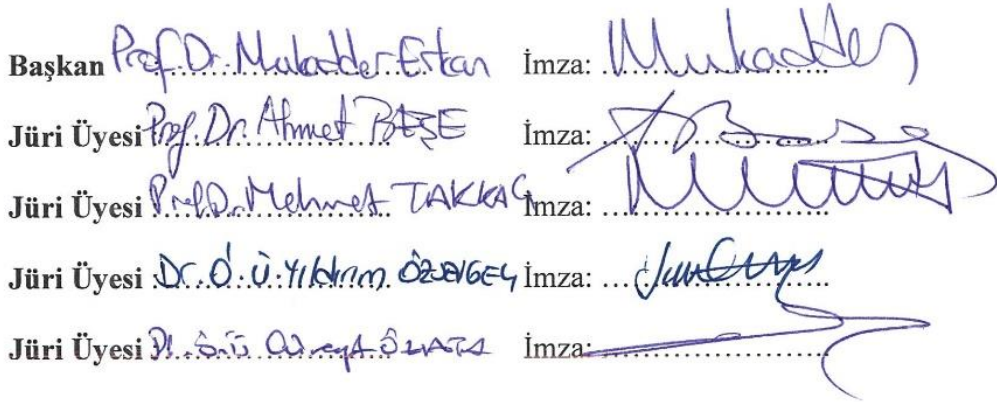 Başkan Prof. Dr. Mukadder Erkan İmza: Mukadder
Jüri Üyesi Prof. Dr. Ahmet BEŞE İmza:
Jüri Üyesi Prof. Dr. Mehmet TAKKAÇ İmza:
Jüri Üyesi Dr. Ö. Ü. Yıldırım ÖZSEVGEÇ İmza:
Jüri Üyesi Dr. Ö. Ü. İmza: